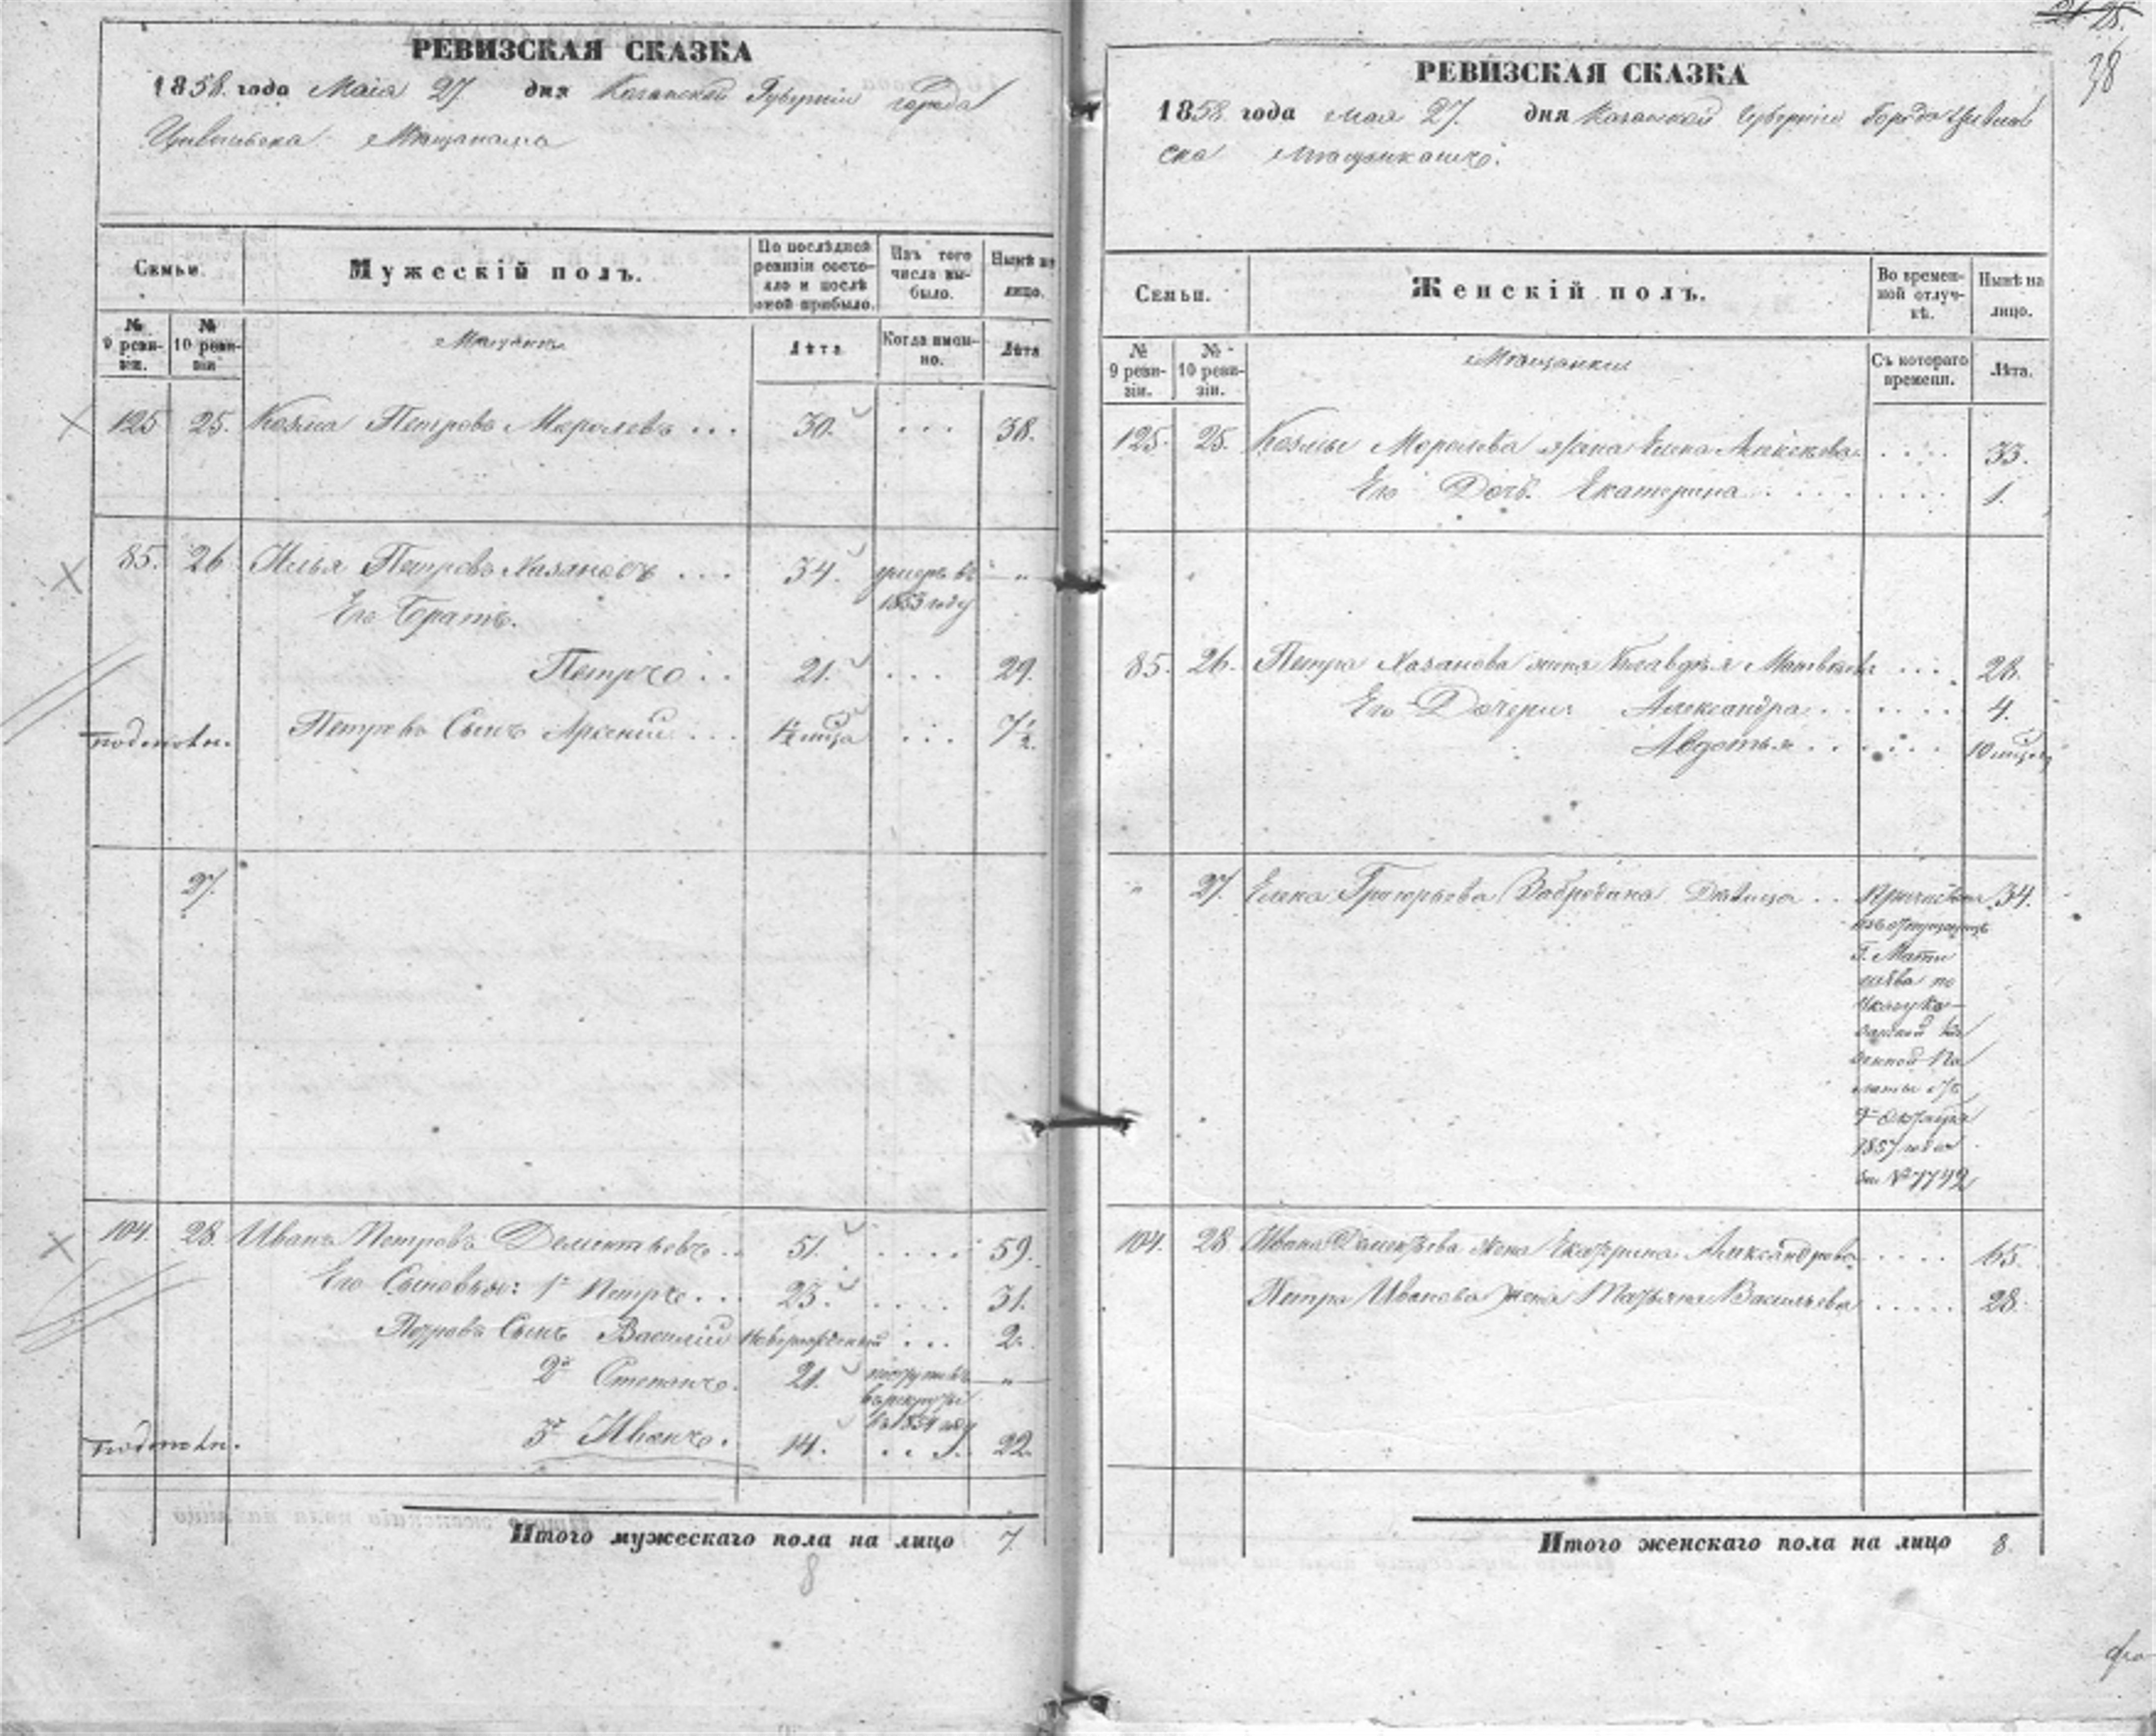 РЕВИЗСКАЯ СКАЗКА
1858. года Маія 27. дня Казанской Губерніи города
Цивильска Мѣщанамъ
Семьи.
Мужескій полъ.
По послѣдней ревизіи состояло и послѣ оной прибыло.
Изъ того числа выбыло.
Нынѣ на лицо.
№ 9 ревизіи.
№ 10 ревизіи
Мещане
Лѣта
Когда именно.
Лѣта
125 25. Козма Петровъ Королевъ ... 30. ... 38.
85. 26 Илья Петровъ Хазановъ ... 34. умеръ въ 1853 году - " -
Его Братъ.
Петръ .. 21. ... 29.
Петровъ Сынъ Арсений ... ½ мца ... 7½.
27.
104. 28. Иванъ Петровъ Дементьевъ .. 51. .... 59.
Его Сыновья: 1й Петръ ... 23. .... 31.
Петровъ Сынъ Василій новорожденный ... 2.
2й Степанъ. 21. въ рекруты въ 1854 году - " -
3й Иванъ. 14. ... 22.
Итого мужескаго пола на лицо 7
8
21 25.
38
РЕВИЗСКАЯ СКАЗКА
1858. года мая 27. дня Казанской Губерніи Города Цивиль
ска Мѣщанкамъ.
Семьи.
Женскій полъ.
Во временной отлучкѣ.
Нынѣ на лицо.
№ 9 ревизіи.
№ 10 ревизіи.
Мѣщанки
Съ котораго времени.
Лѣта.
125. 25. Козмы Королева жена Елена Алексеева .... 33.
Его Дочь. Екатерина ........ 1.
85. 26. Петра Хазанова жена Клавдія Матвѣева .... 28.
Его Дочери: Александра ....... 4.
Авдотья ...... 10 мцовъ
" 27. Елена Григорьева Дѣвица .. Причислена 34.
изъ
Г. Мати
по
Указу Ка
занской Ка
зенной Па
латы отъ
9 Октября
1857 года
за № 7792
104. 28 Ивана Дементьева жена Екатерина Александрова .... 65.
Петра Иванова жена Татьяна Васильева ..... 28.
Итого женскаго пола на лицо 8.